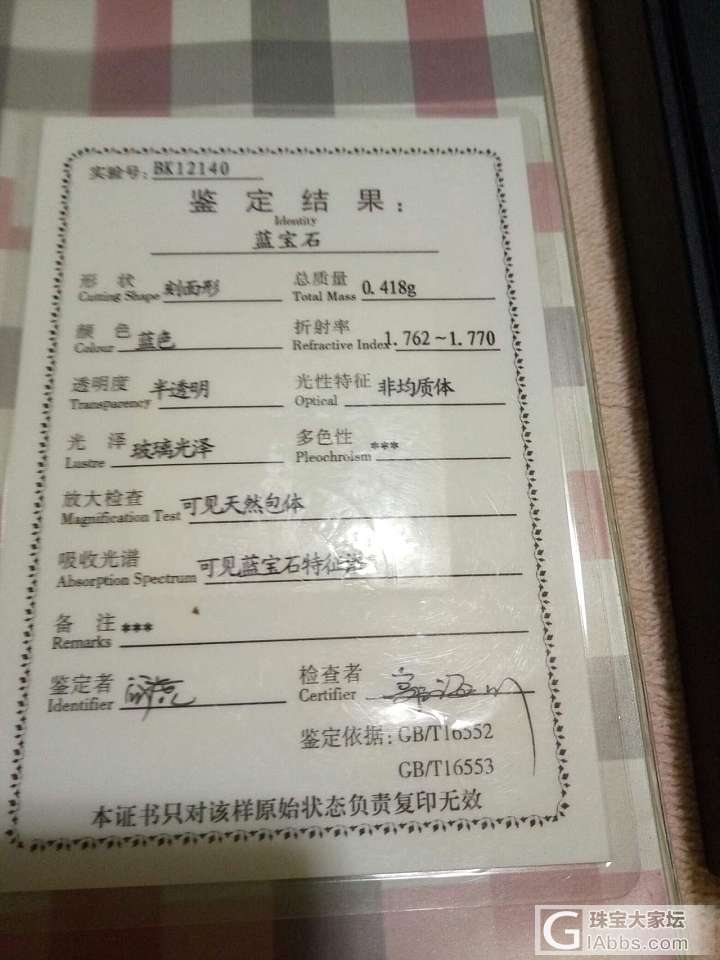 实验号: BK12140
鉴定结果:
Identity
蓝宝石
形状 刻面形 总质量 0.418g
Cutting Shape Total Mass
颜色 蓝色 折射率 1.762~1.770
Colour Refractive Index
透明度 半透明 光性特征 非均质体
Transparency Optical
光泽 玻璃光泽 多色性 ***
Lustre Pleochroism
放大检查 可见天然包体
Magnification Test
吸收光谱 可见蓝宝石特征谱
Absorption Spectrum
备注 ***
Remarks
鉴定者 检查者
Identifier Certifier
鉴定依据: GB/T16552
GB/T16553
本证书只对该样原始状态负责复印无效
G 珠宝大家坛
IAbbs.com